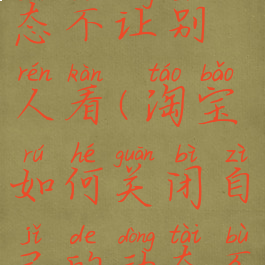 态不让别
rén kàn táo bǎo
人看(淘宝
rú hé guān bì zì
如何关闭自
jǐ de dòng tài bù
己的动态不